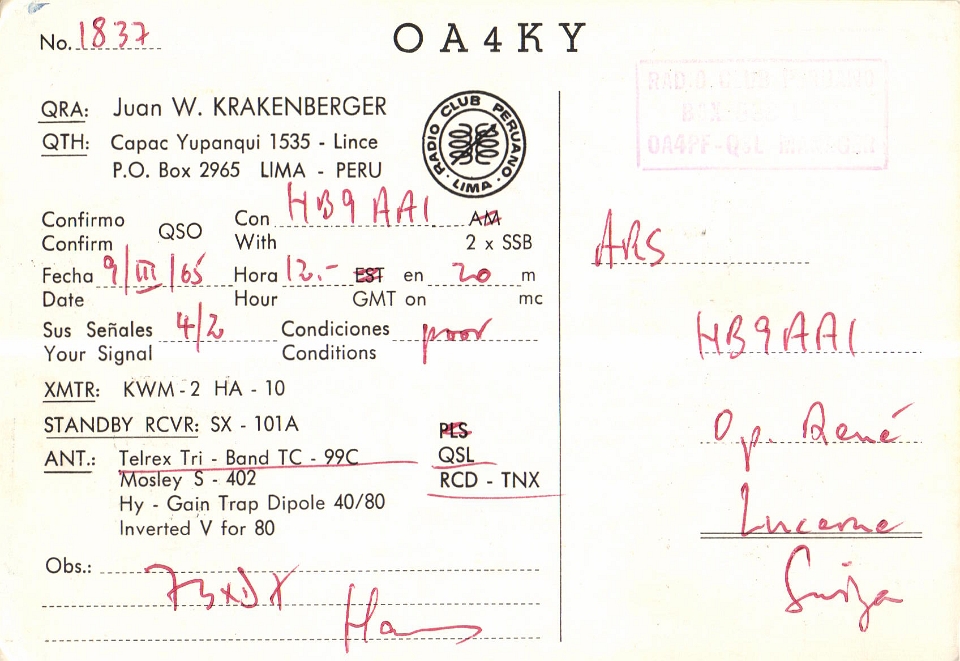 No. 1837
OA4KY
QRA: Juan W. KRAKENBERGER
QTH: Capac Yupanqui 1535 - Lince
P.O. Box 2965 LIMA - PERU
RADIO CLUB PERUANO
· LIMA ·
RADIO CLUB PERUANO
BOX 538
OA4PF-QSL MANAGER
Confirmo QSO Con HB9AAI AM
Confirm With 2 x SSB
Fecha 9/III/65 Hora 12.- EST en 20 m
Date Hour GMT on mc
Sus Señales 4/2 Condiciones poor
Your Signal Conditions
XMTR: KWM-2 HA - 10
STANDBY RCVR: SX - 101A
ANT.: Telrex Tri - Band TC - 99C
Mosley S - 402
Hy - Gain Trap Dipole 40/80
Inverted V for 80
PLS
QSL
RCD - TNX
Obs.: 73xDX
ARS
HB9AAI
Op. René
Lucerne
Suiza